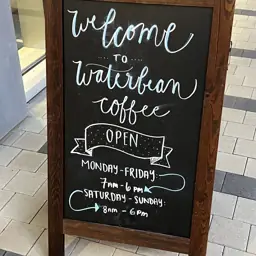 Welcome
TO
Waterbean
coffee
OPEN
MONDAY-FRIDAY:
7am-6pm
SATURDAY-SUNDAY:
8am-6pm